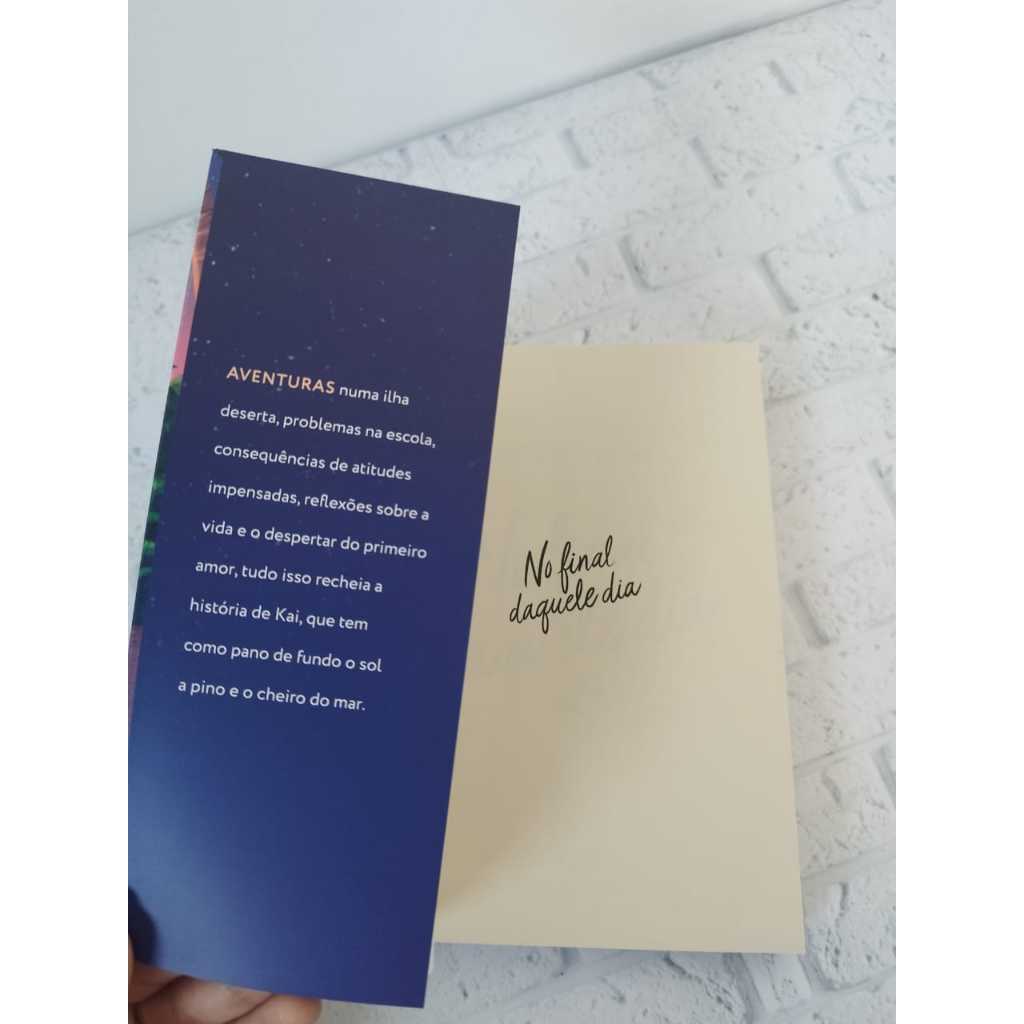 AVENTURAS numa ilha
deserta, problemas na escola,
consequências de atitudes
impensadas, reflexões sobre a
vida e o despertar do primeiro
amor, tudo isso recheia a
história de Kai, que tem
como pano de fundo o sol
a pino e o cheiro do mar.
No final
daquele dia